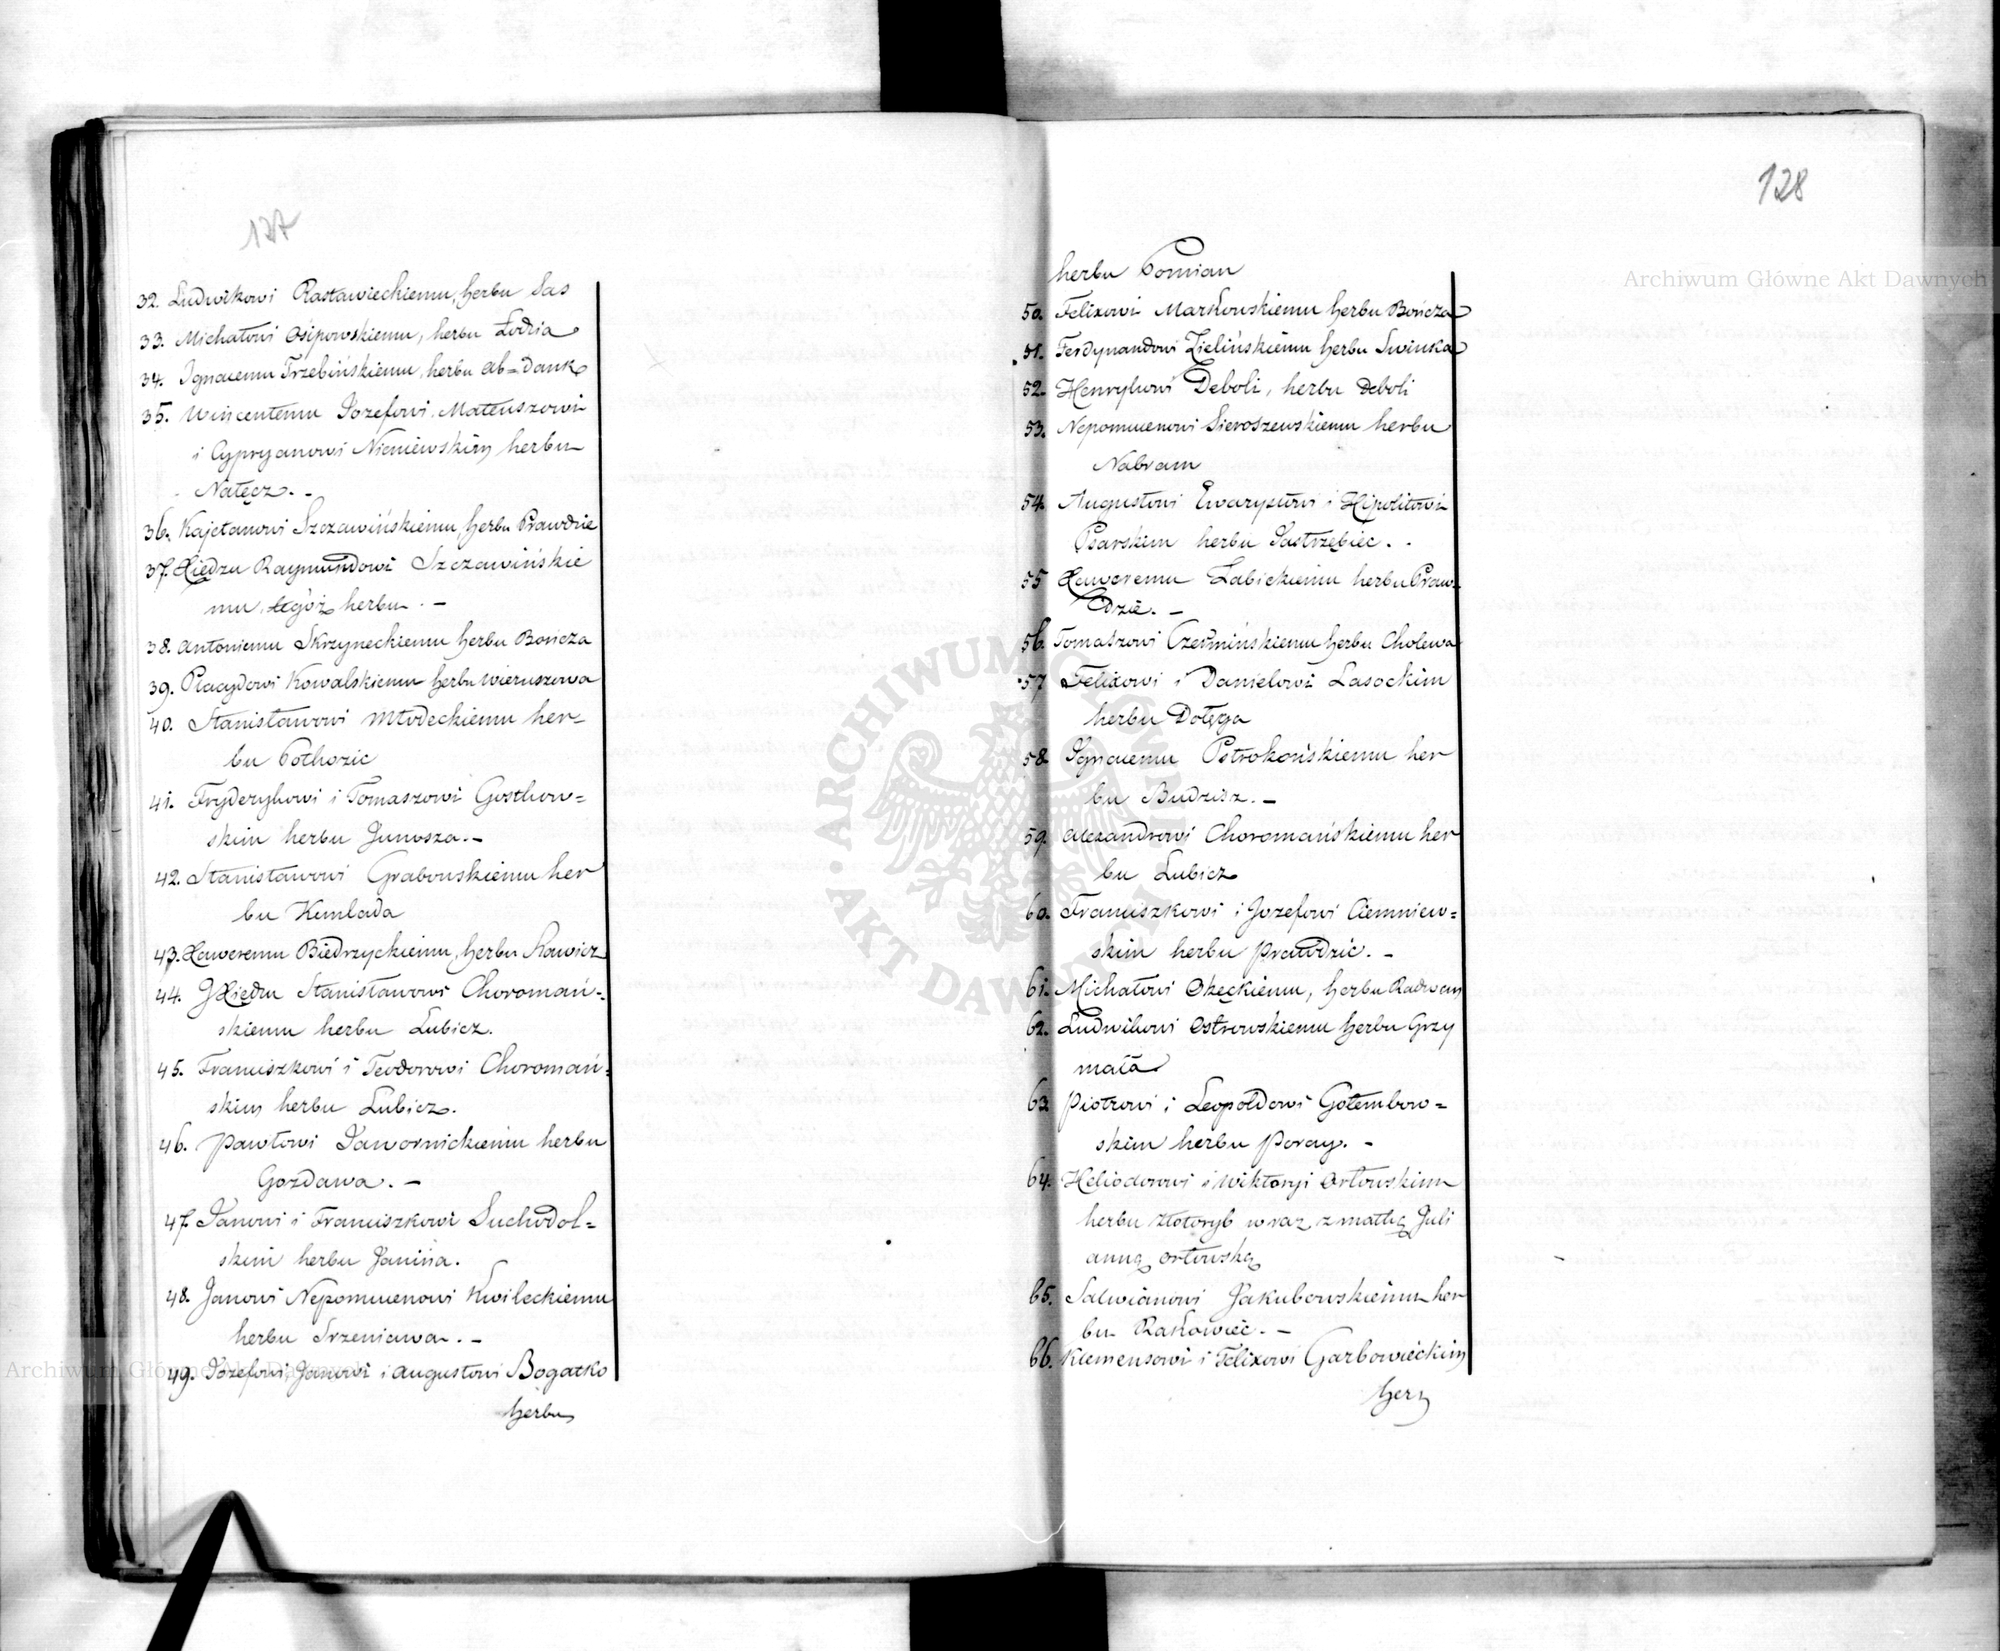 127
32. Ludwikowi Rastawieckiemu, herbu Sas
33. Michałowi Osipowskiemu, herbu Łodzia
34. Ignacemu Trzebińskiemu, herbu Ab=dank
35. Wincentemu Józefowi, Mateuszowi
i Cypryanowi Niemiewskim herbu
Nałęcz. -
36. Kajetanowi Szczawińskiemu, herbu Prawdzic
37. Xiędzu Raymundowi Szczawińskie
mu, tegóż herbu. -
38. Antoniemu Skrzyneckiemu herbu Bończa
39. Placydowi Kowalskiemu herbu Wieruszowa
40. Stanisławowi Młodeckiemu her=
bu Pothozic
41. Fryderykowi i Tomaszowi Gostkow=
skim herbu Junosza. -
42. Stanisławowi Grabowskiemu her
bu
43. Xaweremu Biedrzyckiemu, herbu Rawicz
44. Xiędzu Stanisławowi Choromań=
skiemu herbu Lubicz.
45. Franciszkowi i Teodorowi Choromań=
skim herbu Lubicz.
46. Pawłowi Jawornickiemu herbu
Gozdawa. -
47. Janowi i Franciszkowi Suchodol=
skim herbu Janina.
48. Janowi Nepomucenowi Kwileckiemu
herbu Srzeniawa. -
49. Józefowi, Janowi i Augustowi Bogatko
herbu
128
herbu Pomian
50. Felixowi Markowskiemu herbu Bończa
51. Ferdynandowi Zielińskiemu herbu Swinka
52. Henrykowi Deboli, herbu Deboli
53. Nepomucenowi Sieroszewskiemu herbu
Nabram
54. Augustowi Ewarystowi i Hipolitowi
Psarskim herbu Jastrzębiec. .
55 Xaweremu Łabickiemu herbu Praw=
dzic. -
56. Tomaszowi Czermińskiemu herbu Cholewa
57 Felixowi i Danielowi Lasockim
herbu Dołęga
58 Ignacemu Pstrokońskiemu her
bu Budzisz. -
59. Alexandrowi Choromańskiemu her
bu Lubicz
60. Franciszkowi i Jozefowi Ciemniew=
skim herbu Prawdzic. -
61. Michałowi Okęckiemu, herbu Radwan
62. Ludwikowi Ostrowskiemu herbu Grzy
mała
63 Piotrowi i Leopoldowi Gołembow=
skim herbu Poray. -
64. Heliodorowi i Wiktoryi Orłowskim
herbu Złotoryb wraz z matką Juli
anną Orłowską
65. Salwianowi Jakubowskiemu her
bu Rakowiec. -
66. Klemensowi i Felixowi Garbowieckim
her
Archiwum Główne Akt Dawnych
ARCHIWUM GŁÓWNE • AKT DAWNYCH •
Archiwum Główne Akt Dawnych